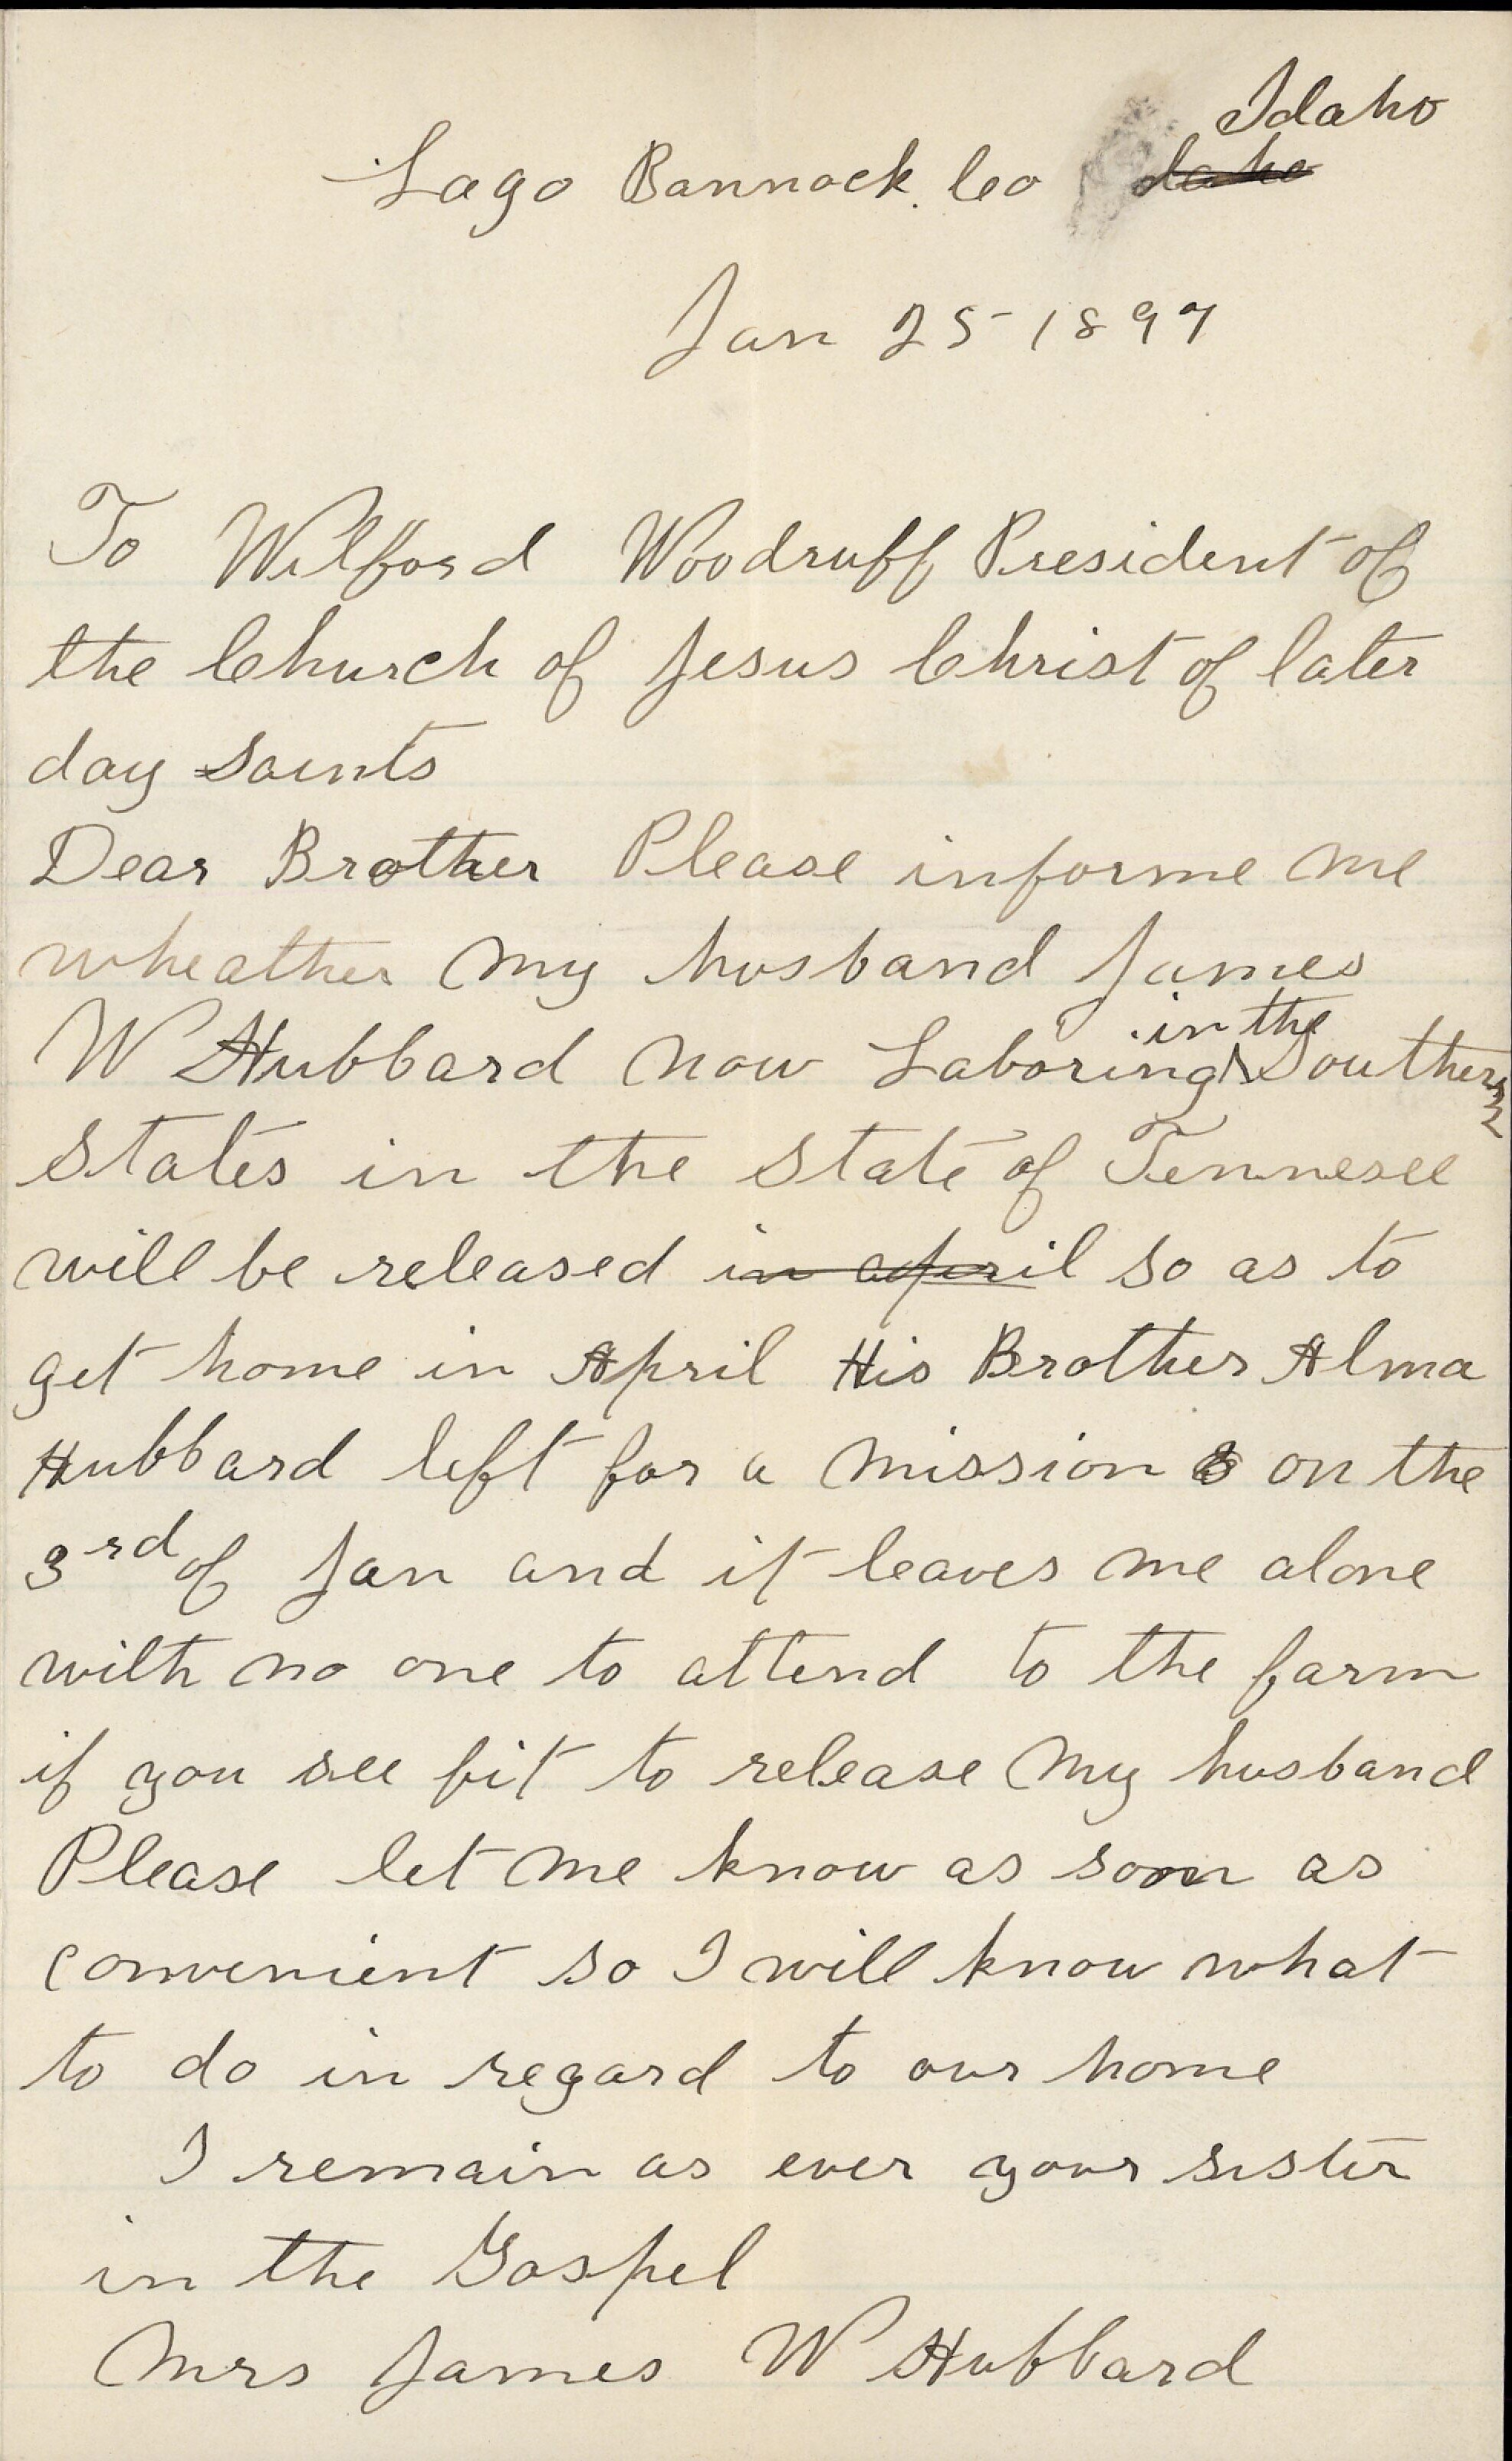 Idaho
Lago Bannock. Co daho
Jan 25 - 1897
To Wilford Woodruff President of
the Church of Jesus Christ of later
day Saints
Dear Brother Please informe me
wheather my husband James
W Hubbard now Laboring in the Southern
States in the State of Tennesee
will be released in april so as to
get home in April His Brother Alma
Hubbard left for a mission on the
3rd of Jan and it leaves me alone
with no one to attend to the farm
if you see fit to release my husband
Please let me know as soon as
convenient so I will know what
to do in regard to our home
I remain as ever your sister
in the Gospel
Mrs James W Hubbard